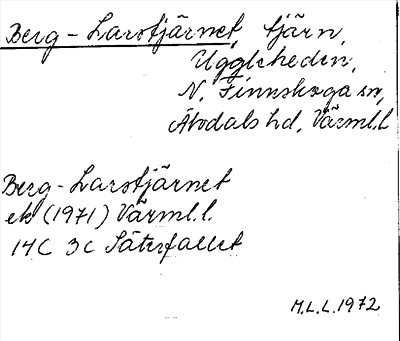 Berg-Larstjärnet, tjärn,
Uggleheden,
N. Finnskoga sn,
Älvdals hd, Värml.l
Berg-Larstjärnet
ek (1971) Värml.l.
14C 3c Säterfallet
M.L.L. 1972